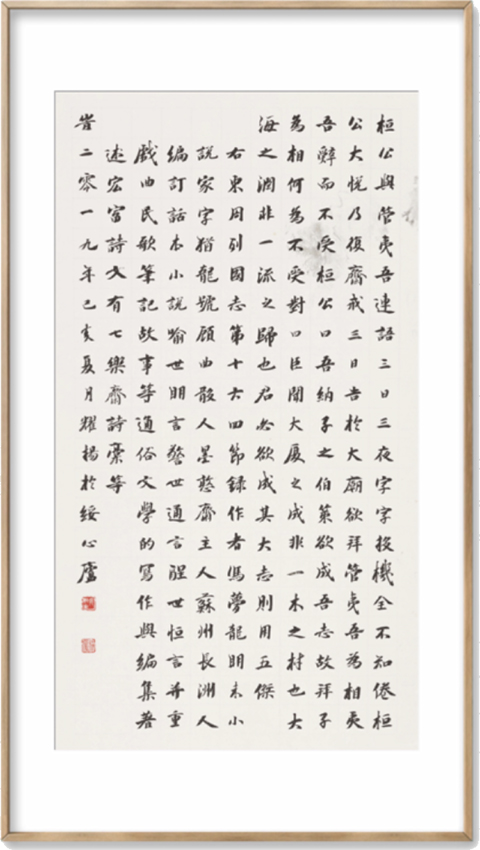 桓公與管夷吾連語三日三夜字字投機全不知倦桓
公大悅乃復齋戒三日告於大廟欲拜管夷吾為相夷
吾辭而不受桓公曰吾納子之伯策欲成吾志故拜子
為相何為不受對曰臣聞大廈之成非一木之材也大
海之潤非一流之歸也君必欲成其大志則用五傑
右東周列國志第十六回節錄作者馮夢龍明末小
說家字猶龍號顧曲散人墨憨齋主人蘇州長洲人
編訂話本小說喻世明言警世通言醒世恒言並重
戲曲民歌筆記故事等通俗文學的寫作與編集著
述宏富詩文有七樂齋詩稾等
旹二零一九年己亥夏月耀揚於綏心廬